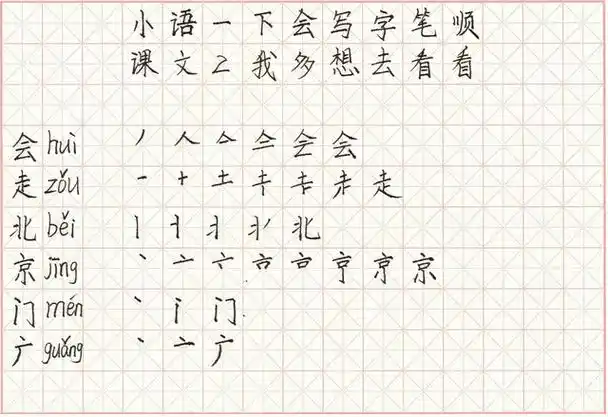 小语一下会写字笔顺
课文2我多想去看看
会 huì 丿 人 亼 亼 会 会
走 zǒu 一 十 土 キ 走
北 běi 丨 北
京 jīng 丶 亠 六 京
门 mén 丶 门
广 guǎng 丶 亠 广